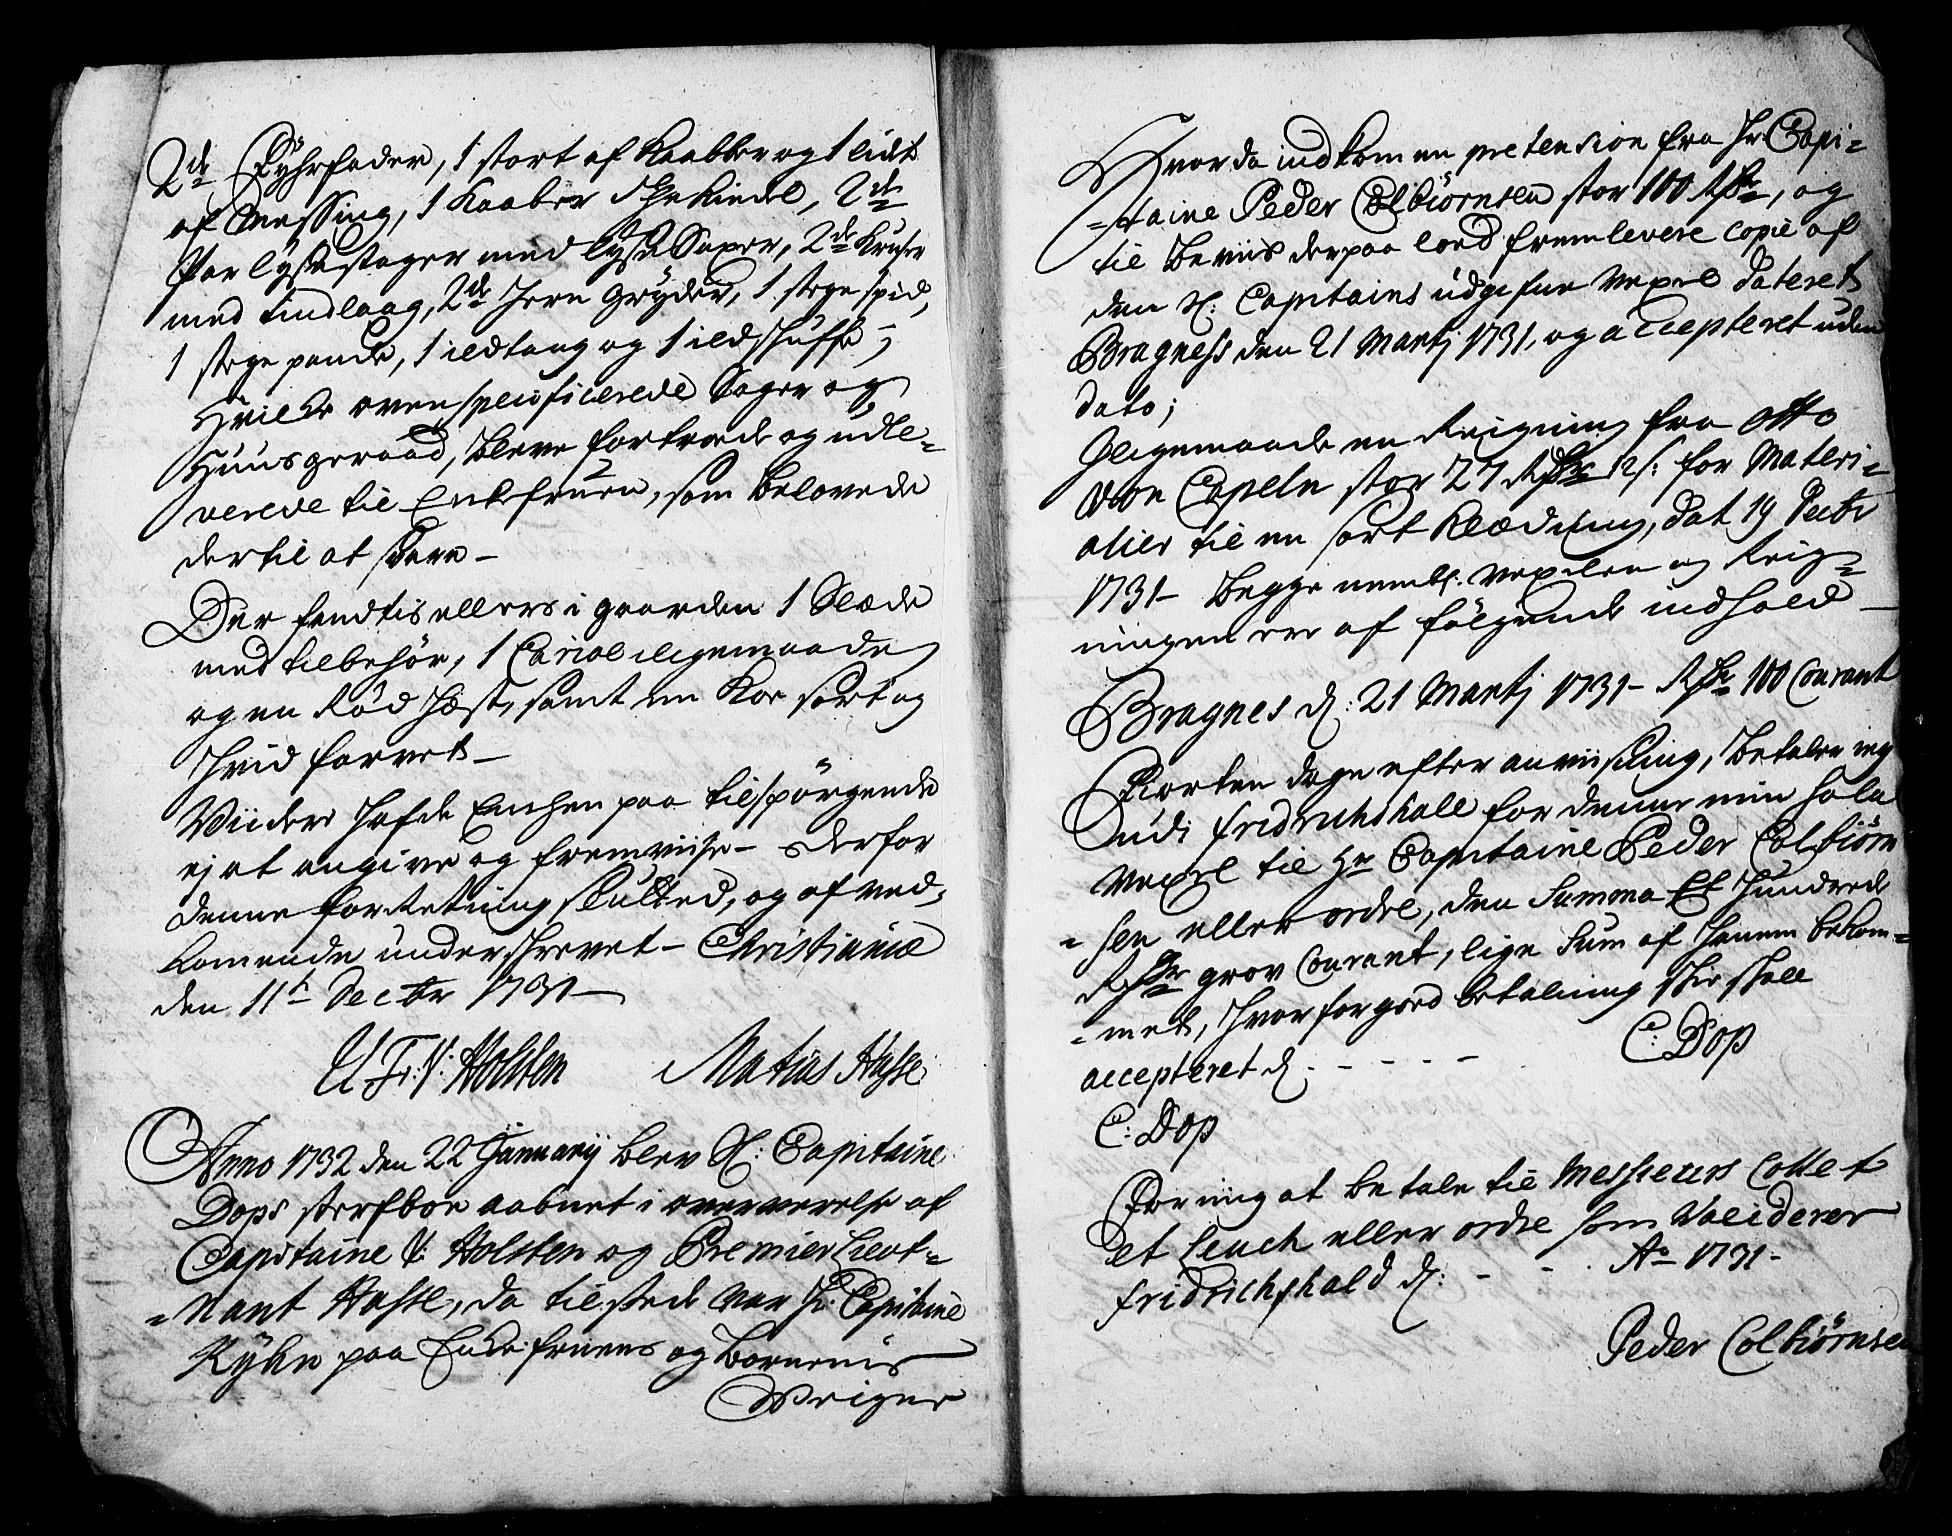 2de Fyhrfader, 1 stort af Kaabber og 1 lidt
af Messing, 1 Kaaber The Kiedel, 2de
Par lysestager med lyse Saxer, 2de Kruser
med tindlaag, 2de Jern Gryder, 1 stege spid,
1 stege pande, 1 ildtang og 1 ildskuffe;
Hvilke ovenspecificerede Sager og
Huusgeraad, bleve fortroede og udle-
verede til Enkefruen, som belovede
dertil at svare –
Der fandtis ellers i gaarden 1 Slæde
med tilbehör, 1 Cariol iligemaade
og en Rød Hæst, samt en Koe sort og
hvid farvet –
Viidere hafde Enchen paa tilspörgende
ej at angive og fremviise – derfor
denne forRetning slutted, og af ved-
komende underskrevet – Christiania
den 11t Decbr 1731 –
U. F. V. Holsten Matias Hasse
Anno 1732 den 22 Januarij blev Sl: Capitaine
Dops sterfboe aabnet i overværelse af
Capitaine V: Holsten og Premier Lieut-
-nant Hasse, da tilstede var Hr. Capitaine
Rÿhn paa Encke fruens og Børnenis
Weigne
Hvor da indkom en pretension fra Hr Capi-
-taine Peder Colbiørnsen stor 100 Rdr, og
til Beviis derpaa loed fremlevere copie af
den Sl: Capitains udgifne Vexel dateret
Bragness den 21 Martj 1731, og accepteret uden
dato;
Iligemaade en Reigning fra Otto
von Capeln stor 27 Rdr 12 s: for Materi-
alier til en sort Klædning, dat 19 Decbr
1731 – Begge neml. vexelen og Reig-
ningen ere af fölgende indhold –
Bragnes d: 21 Martj 1731 – Rdr 100 Courant
Fiorten dage efter anviisning, betaler ieg
udi Fridrichshald for denne min Sola
Vexel til Hr Capitaine Peder Colbiørn
-sen eller ordre, den Summa Et Hundrede
Rdr grov Courant, lige Sum af Hannem bekom-
-met, hvorfor goed betalning skee skall
accepteret d. - - - - C: Dop
C: Dop
For mig at betale til Messieurs Collet
et Leuch eller ordre som Valideren
Fridrichshald d: - - . Ao 1731 –
Peder Colbiørnsen